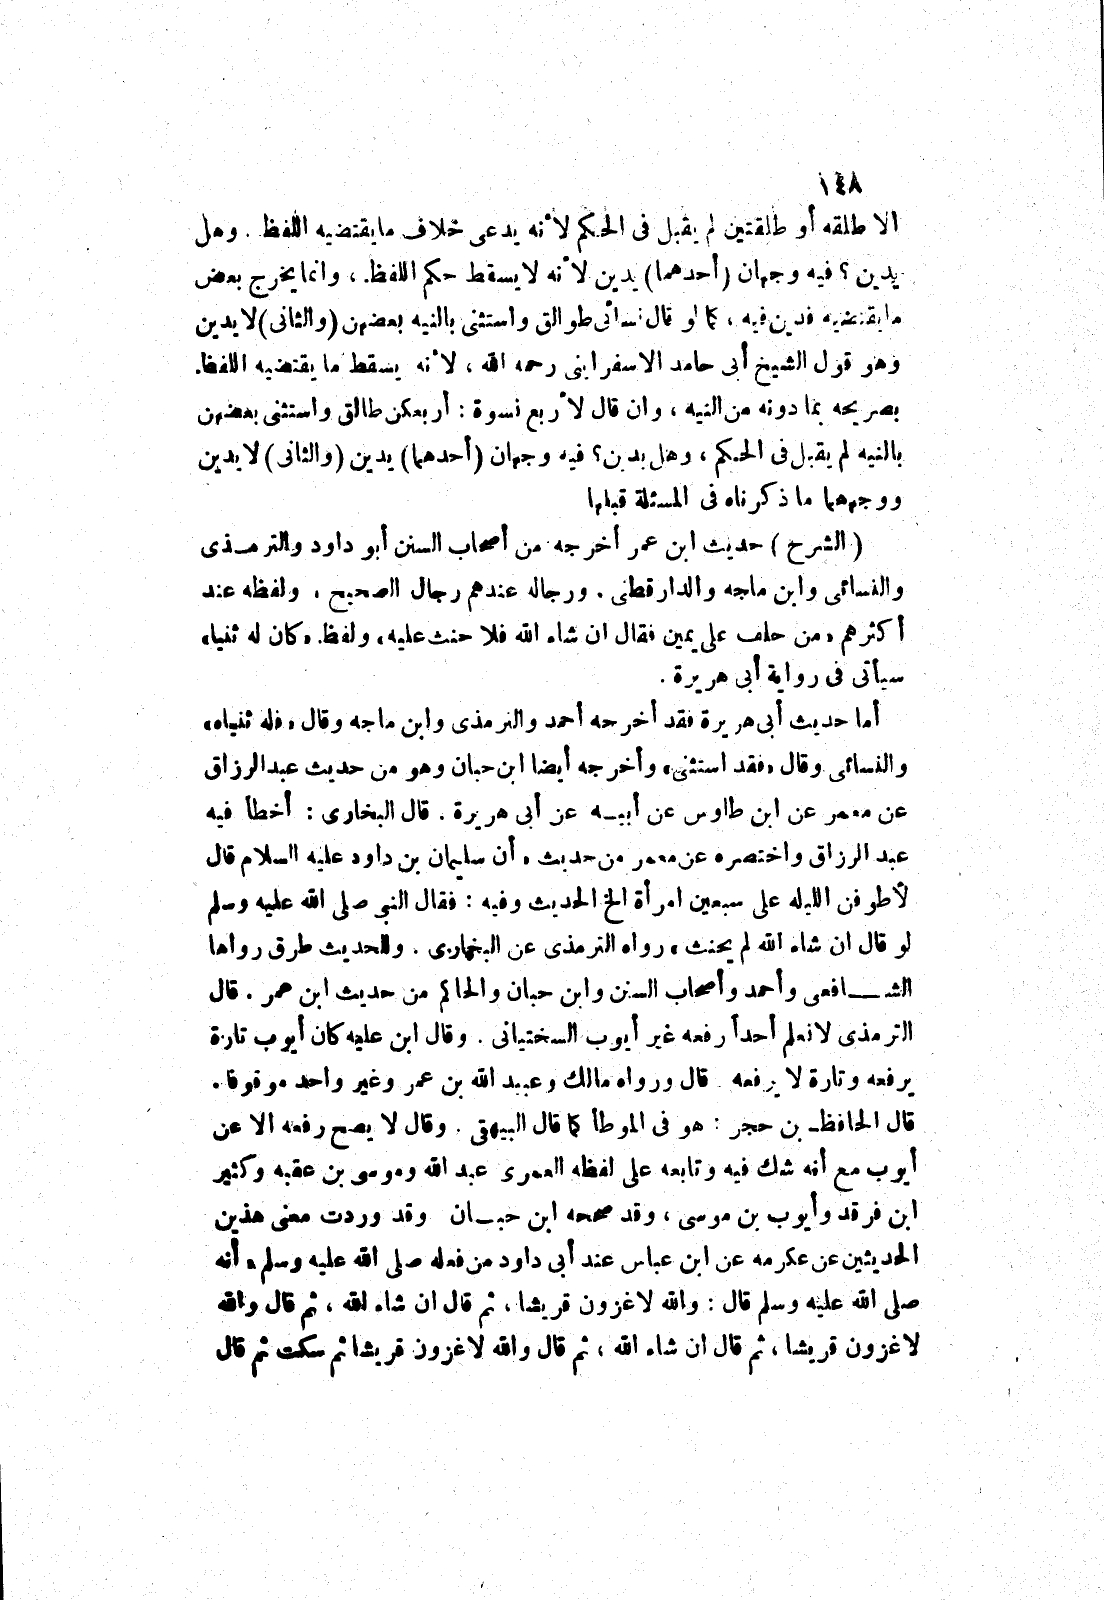 ١٤٨
الا طلقه أو طلقتين لم يقبل فى الحكم لأنه يدعى خلاف ما يقتضيه اللفظ . وهل
يدين ؟ فيه وجهان (أحدهما) يدين لأنه لا يسقط حكم اللفظ ، وانما يخرج بعض
ما يقتضيه فدين فيه ، كما لو قال نسائى طوالق واستثنى بالنيه بعضهن (والثانى) لا يدين
وهو قول الشيخ أبى حامد الاسفرابنى رحمه الله ، لأنه يسقط ما يقتضيه اللفظ
بصريحه بما دونه من النيه ، وان قال لأربع نسوة : أربعكن طالق واستثنى بعضهن
بالنيه لم يقبل فى الحكم ، وهل يدين ؟ فيه وجهان (أحدهما) يدين (والثانى) لا يدين
ووجههما ما ذكرناه فى المسئلة قبلها
( الشرح ) حديث ابن عمر أخرجه من أصحاب السنن أبو داود والترمـذى
والنسائى وابن ماجه والدارقطنى . ورجاله عندهم رجال الصحيح ، ولفظه عند
أكثرهم «من حلف على يمين فقال ان شاء الله فلا حنث عليه» ولفظ «كان له ثنيا»
سيأتى فى رواية أبى هريرة .
أما حديث أبى هريرة فقد أخرجه أحمد والترمذى وابن ماجه وقال «فله ثنياه»
والنسائى وقال «فقد استثنى» وأخرجه أيضا ابن حبان وهو من حديث عبد الرزاق
عن معمر عن ابن طاوس عن أبيـه عن أبى هريرة . قال البخارى : أخطأ فيه
عبد الرزاق واختصره عن معمر من حديث « أن سليمان بن داود عليه السلام قال
لأطوفن الليله على سبعين امرأة الخ الحديث وفيه : فقال النبى صلى الله عليه وسلم
لو قال ان شاء الله لم يحنث » رواه الترمذى عن البخارى . وللحديث طرق رواها
الشـــافعى وأحمد وأصحاب السنن وابن حبان والحاكم من حديث ابن عمر . قال
الترمذى لا نعلم أحداً رفعه غير أيوب السختيانى . وقال ابن عليه كان أيوب تارة
يرفعه وتارة لا يرفعه . قال ورواه مالك وعبيد الله بن عمر وغير واحد موقوفا .
قال الحافظ بن حجر : هو فى الموطأ كما قال البيهقى . وقال لا يصح رفعه الا عن
أيوب مع أنه شك فيه وتابعه على لفظه العمرى عبد الله وموسى بن عقبه وكثير
ابن فرقد وأيوب بن موسى ، وقد صححه ابن حبـان وقد وردت معنى هذين
الحديثين عن عكرمه عن ابن عباس عند أبى داود من فعله صلى الله عليه وسلم « أنه
صلى الله عليه وسلم قال : والله لاغزون قريشا ، ثم قال ان شاء الله ، ثم قال والله
لاغزون قريشا ، ثم قال ان شاء الله ، ثم قال والله لاغزون قريشا ثم سكت ثم قال